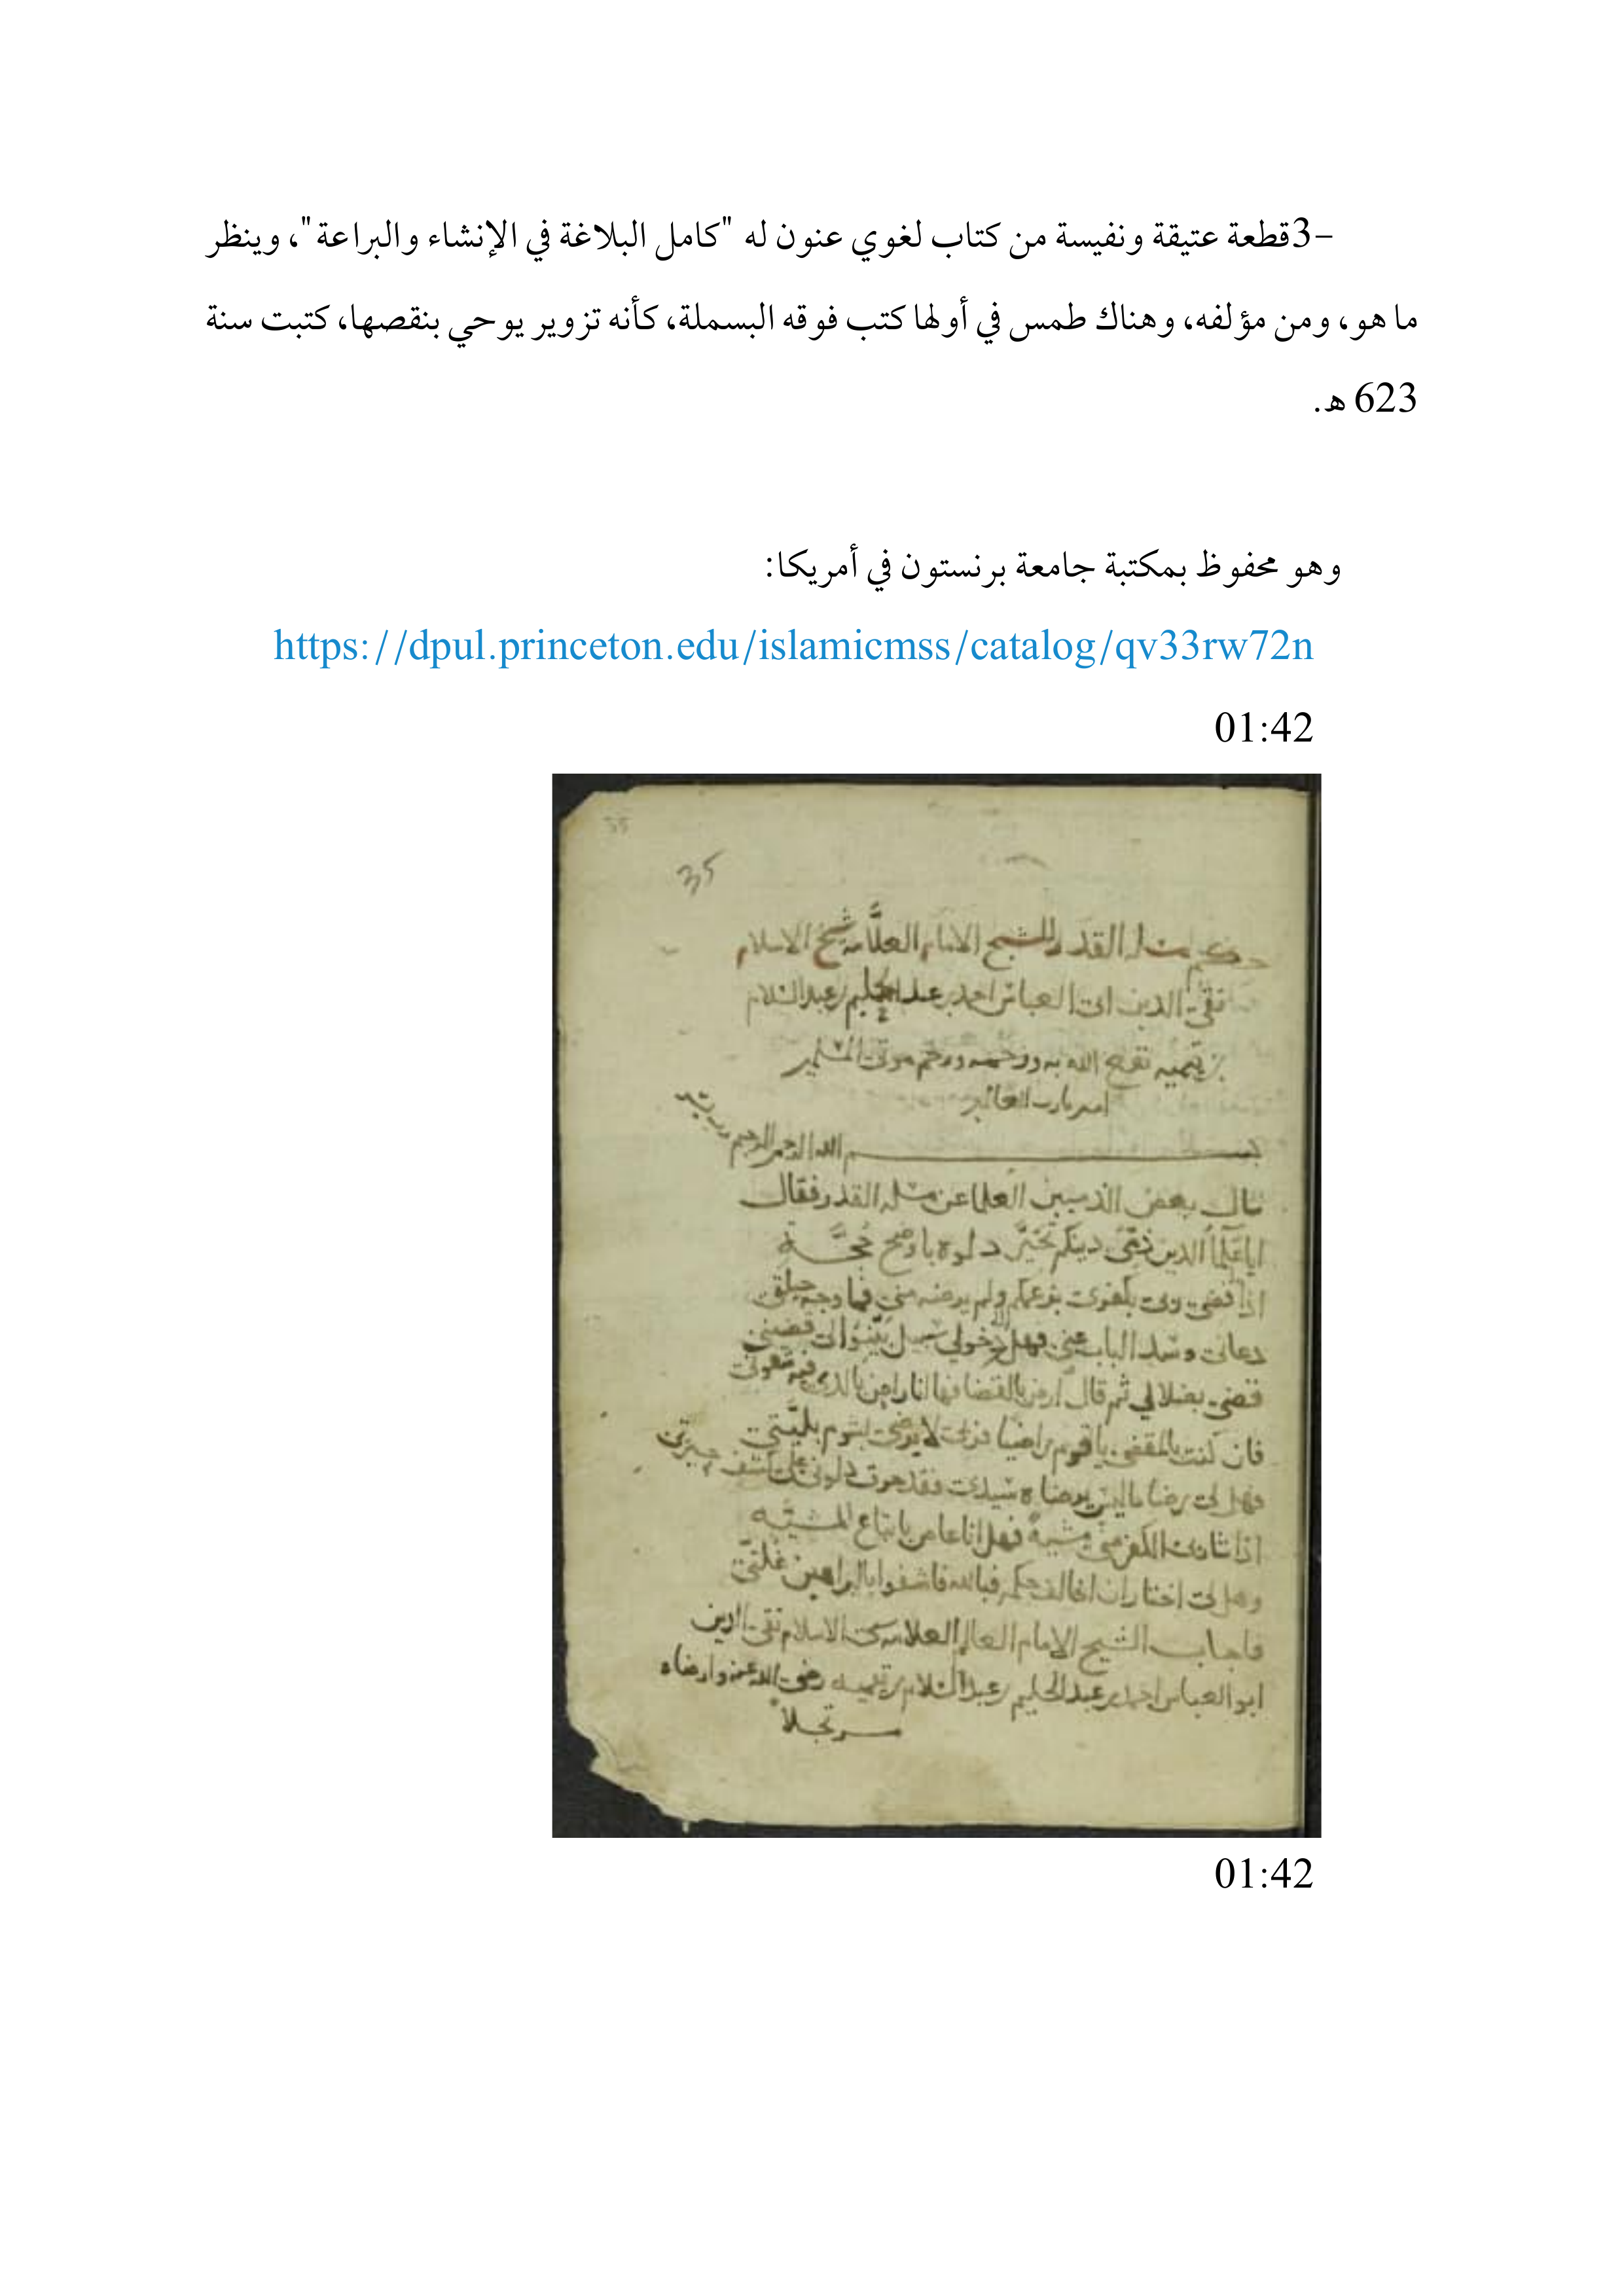 -3قطعة عتيقة ونفيسة من كتاب لغوي عنون له "كامل البلاغة في الإنشاء والبراعة"، وينظر
ما هو، ومن مؤلفه، وهناك طمس في أولها كتب فوقه البسملة، كأنه تزوير يوحي بنقصها، كتبت سنة
623 هـ.
وهو محفوظ بمكتبة جامعة برنستون في أمريكا:
https://dpul.princeton.edu/islamicmss/catalog/qv33rw72n
01:42
35
35
القدر للشيخ الامام العلامه شيخ الاسلام
تقي الدين ابي العباس احمد بن عبد الحليم بن عبد السلام
بن تيميه نفع الله به ورحمه ورحم موتى المسلمين
امين يارب العالمين
بسم الله الرحمن الرحيم رب يسر
سال بعض الذميين العلما عن مسله القدر فقال
ايا علما الدين ذمي دينكم تحير دلوه باوضح حجة
اذا قضى ربي بكفري بزعمكم ولم يرضه مني فما وجه حيلتي
دعاني وسد الباب عني فهل الى دخولي سبيل بينوا لي قضيتي
قضى بضلالي ثم قال ارض بالقضا فها انا راض بالذي فيه شقوتي
فان كنت بالمقضي يا قوم راضيا فربي لا يرضى لشوم بليتي
فهل لي رضا ما ليس يرضاه سيدي فقد حرت دلوني على كشف حيرتي
اذا شا ربي الكفر مني مشيه فهل انا عاص باتباع المشيه
وهل لي اختيار ان اخالف حكمه فبالله فاشفوا بالبراهين غلتي
فاجاب الشيخ الامام العالم العلامه شيخ الاسلام تقي الدين
ابو العباس احمد بن عبد الحليم بن عبد السلام بن تيميه رضي الله عنه وارضاه
مرتجلا
01:42